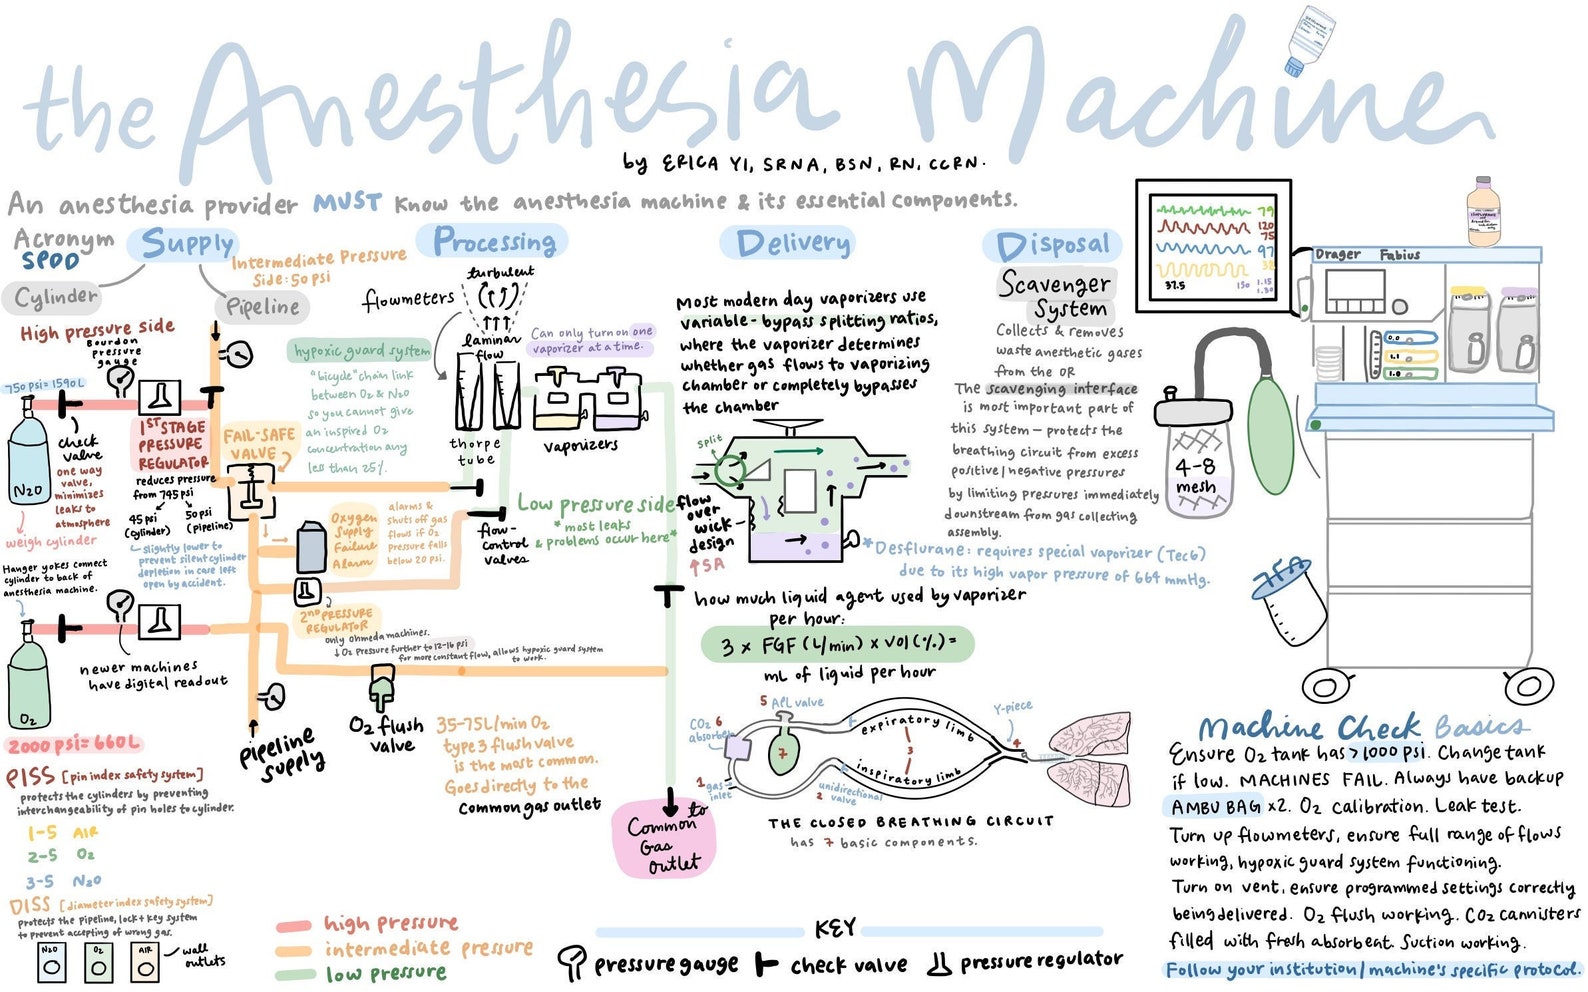 the Anesthesia Machine
by ERICA YI, SRNA, BSN, RN, CCRN.
An anesthesia provider MUST know the anesthesia machine & its essential components.
Acronym
SPDD
Supply
Cylinder
Pipeline
Intermediate Pressure
Side: 50 psi
High pressure side
Bourdon
pressure
gauge
750 psi = 1590 L
N2O
check
valve
one way
valve,
minimizes
leaks to
atmosphere
weigh cylinder
1ST STAGE
PRESSURE
REGULATOR
reduces pressure
from 745 psi
45 psi
(cylinder)
50 psi
(pipeline)
slightly lower to
prevent silent cylinder
depletion in case left
open by accident.
Hanger yokes connect
cylinder to back of
anesthesia machine.
O2
newer machines
have digital readout
2000 psi = 660L
PISS [pin index safety system]
protects the cylinders by preventing
interchangeability of pin holes to cylinder.
1-5 AIR
2-5 O2
3-5 N2O
DISS [diameter index safety system]
protects the pipeline, lock + key system
to prevent accepting of wrong gas.
N2O
O2
AIR
wall
outlets
FAIL-SAFE
VALVE
Oxygen
Supply
Failure
Alarm
alarms &
shuts off gas
flows if O2
pressure falls
below 20 psi.
2nd PRESSURE
REGULATOR
only ohmeda machines.
↓ O2 pressure further to 12-16 psi
for more constant flow, allows hypoxic guard system
to work.
pipeline
supply
O2 flush
valve
35-75L/min O2
type 3 flush valve
is the most common.
Goes directly to the
common gas outlet
Processing
flowmeters
turbulent
laminar
flow
hypoxic guard system
"bicycle" chain link
between O2 & N2O
so you cannot give
an inspired O2
concentration any
less than 25%.
thorpe
tube
Can only turn on one
vaporizer at a time.
vaporizers
flow-
control
valves
Low pressure side
*most leaks
& problems occur here*
to
Common
Gas
outlet
Delivery
Most modern day vaporizers use
variable-bypass splitting ratios,
where the vaporizer determines
whether gas flows to vaporizing
chamber or completely bypasses
the chamber
split
flow
over
wick-
design
↑SA
*Desflurane: requires special vaporizer (Tec6)
due to its high vapor pressure of 664 mmHg.
how much liquid agent used by vaporizer
per hour:
3 x FGF (L/min) x vol (%) =
mL of liquid per hour
5 APL valve
CO2 6
absorber
7
expiratory limb
3
inspiratory limb
Y-piece
4
1 gas
inlet
unidirectional
2 valve
THE CLOSED BREATHING CIRCUIT
has 7 basic components.
Disposal
Scavenger
System
Collects & removes
waste anesthetic gases
from the OR
The scavenging interface
is most important part of
this system - protects the
breathing circuit from excess
positive/negative pressures
by limiting pressures immediately
downstream from gas collecting
assembly.
79
120
75
97
38
37.5
150
1.15
1.30
Drager Fabius
0.0
1.0
1.0
4-8
mesh
Machine Check Basics
Ensure O2 tank has >1000 psi. Change tank
if low. MACHINES FAIL. Always have backup
AMBU BAG x2. O2 calibration. Leak test.
Turn up flowmeters, ensure full range of flows
working, hypoxic guard system functioning.
Turn on vent, ensure programmed settings correctly
being delivered. O2 flush working. CO2 cannisters
filled with fresh absorbeat. Suction working.
Follow your institution/machine's specific protocol.
high pressure
intermediate pressure
low pressure
KEY
pressure gauge
check valve
pressure regulator